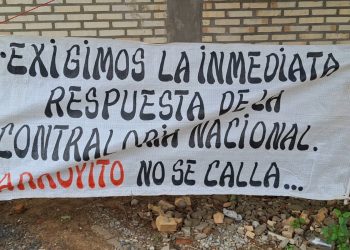 ·EXIGIMOS LA INMEDIATA
RESPUESTA DE LA
CONTRALORIA NACIONAL.
ARROYITO NO SE CALLA...